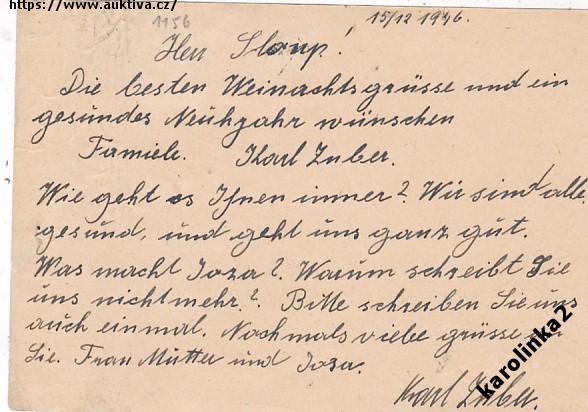 https://www.auktiva.cz/
1156
15/12 1946.
Herr Sloup!
Die besten Weinachtsgrüsse und ein
gesundes Neühjahr wünschen
Famiele. Karl Zuber.
Wie geht es Ihnen immer? Wir sind alle
gesund, und geht uns ganz gut.
Was macht Joza? Warum schreibt Sie
uns nicht mehr? Bitte schreiben Sie uns
auch einmal. Nochmals viebe grüsse an
Sie. Frau Mutter und Joza.
Karl Zuber.
karolinka2